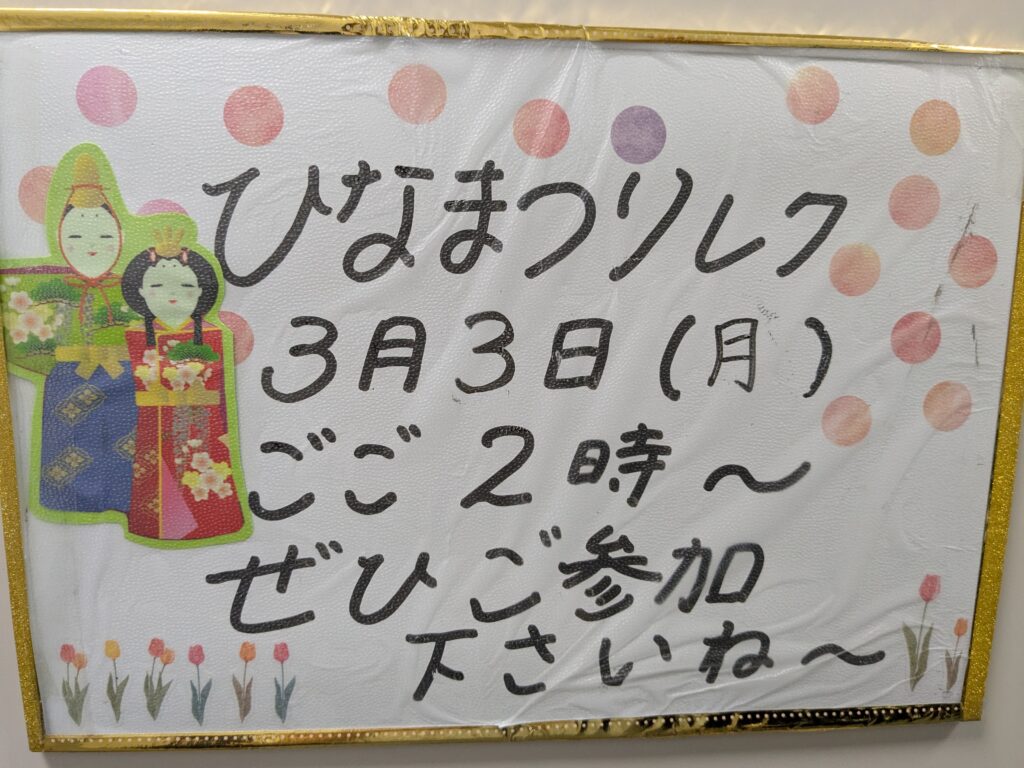 ひなまつりレク
3月3日(月)
ごご 2時～
ぜひご参加
下さいね～